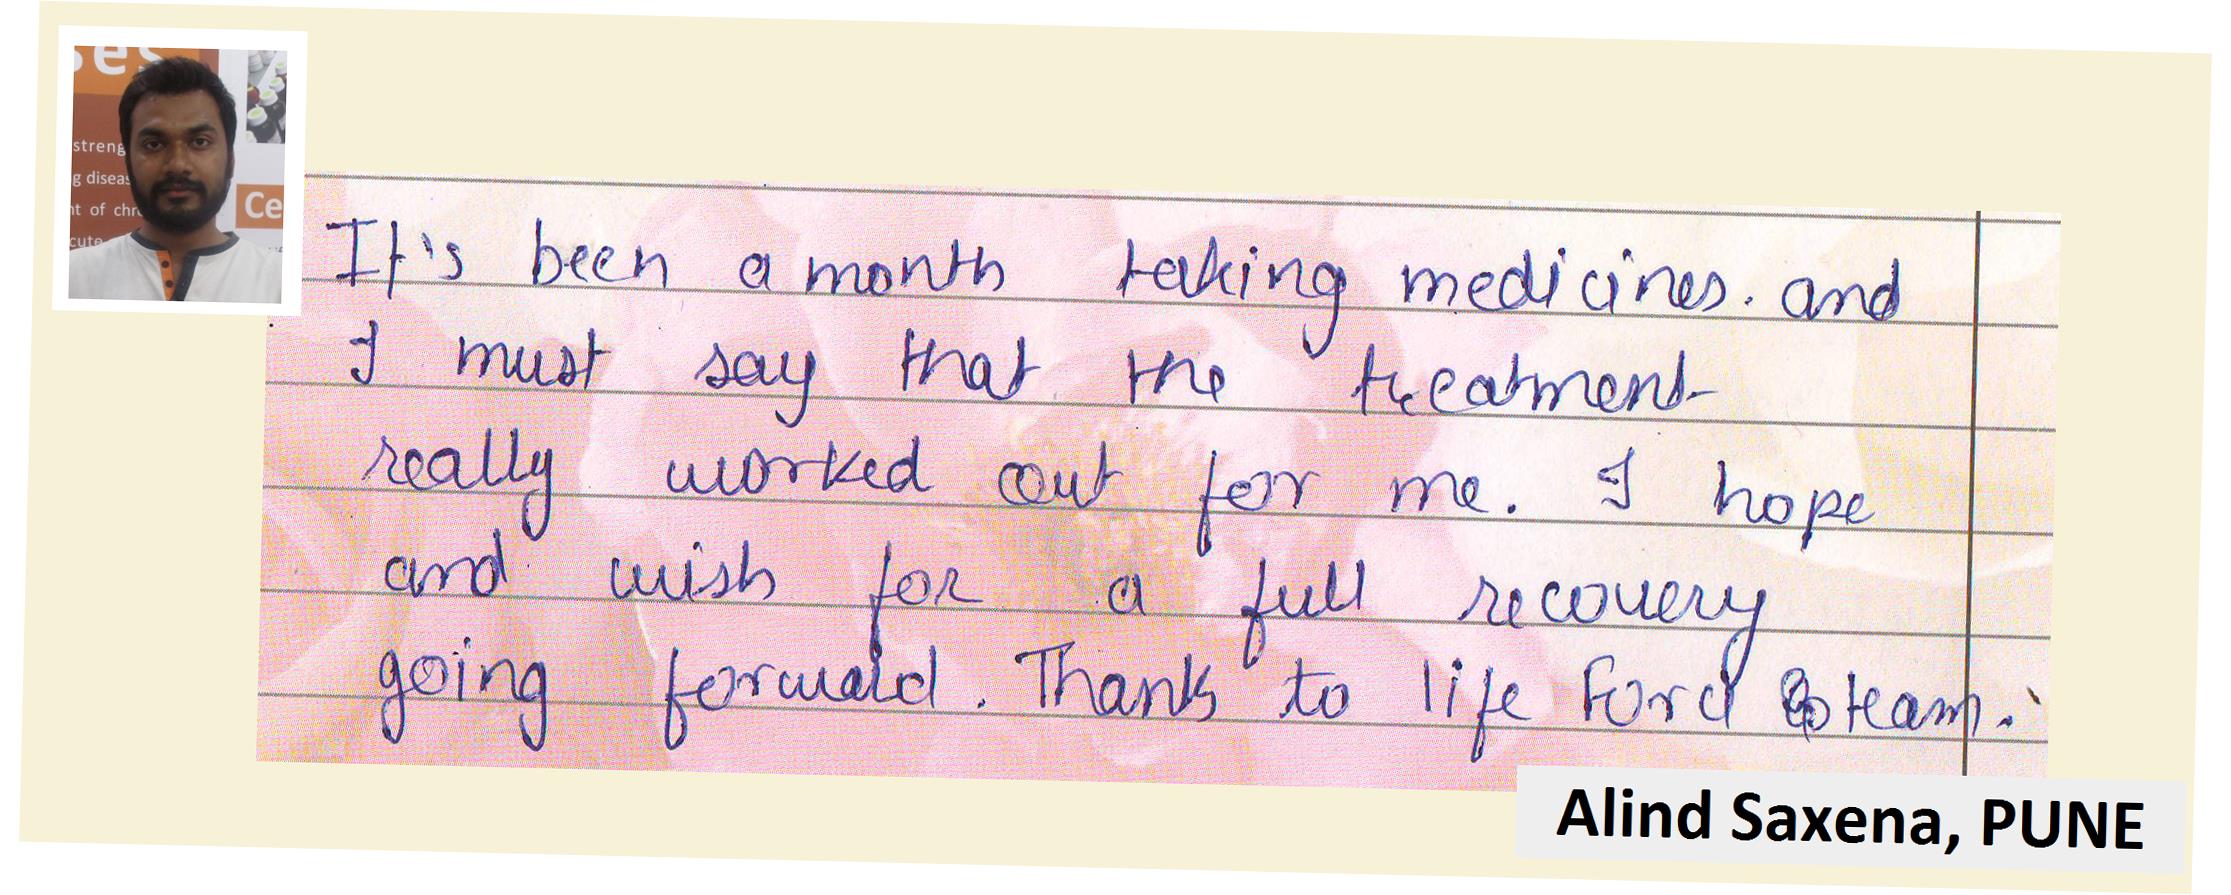 ses
streng
g diseas
nt of chr
cute
Ce
It's been a month taking medicines. and
I must say that the treatment
really worked out for me. I hope
and wish for a full recovery
going forward. Thanks to life Ford & team.
Alind Saxena, PUNE